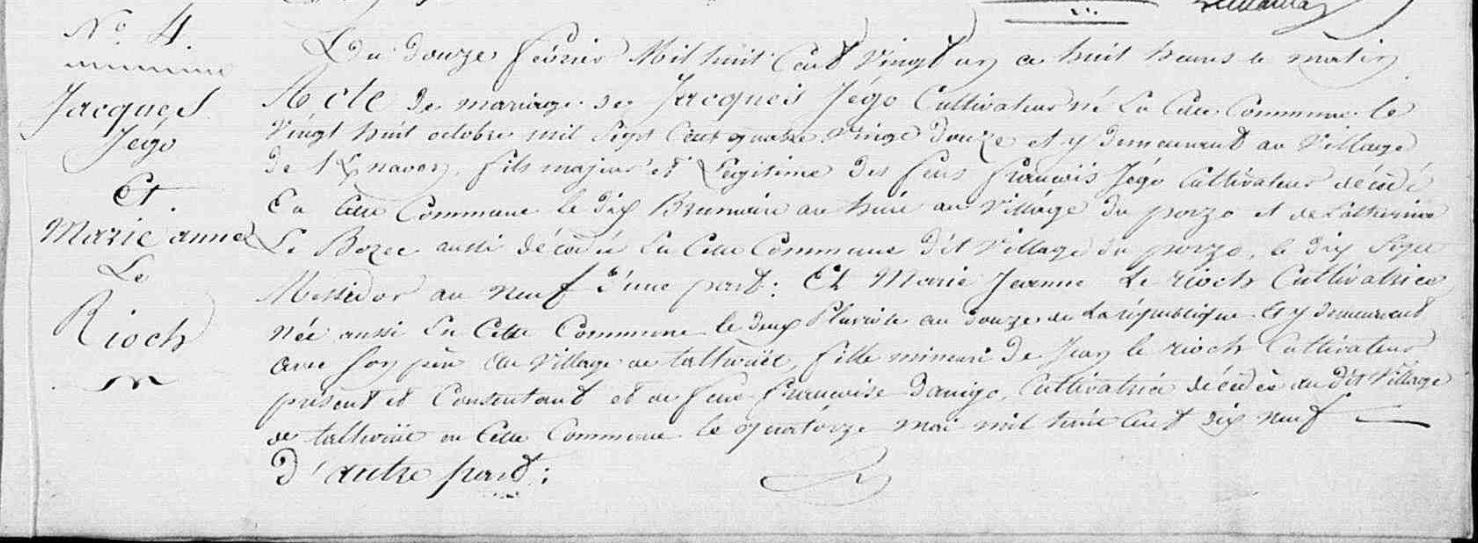 N.° 4.
Jacques
Jégo
Et.
Marie anne
Le
Rioch
Du douze février Mil huit Cent Vingt un a huit heures le matin
Acte de mariage de Jacques Jégo Cultivateur né En Cette Commune le
Vingt huit octobre mil Sept Cent quatre Vingt douze et y demeurant au Village
de fils majeur et Légitime des feus françois Jégo Cultivateur décédé
En Cette Commune le dix Brumaire an huit au Village du porzo et de Catherine
Le Bozec aussi décédée En Cette Commune dit Village du porzo, le dix Sept
Messidor an neuf d'une part : Et Marie Jeanne Le rioch Cultivatrice
Née aussi En Cette Commune le deux Pluviôse an douze de La république Et y demeurant
avec Son père au Village de fille mineure de Jean le rioch Cultivateur
présent et Consentant et de feue françoise Danigo, Cultivatrice décédée au dit Village
de en Cette Commune le quatorze mai mil huit cent dix neuf
D'autre part :